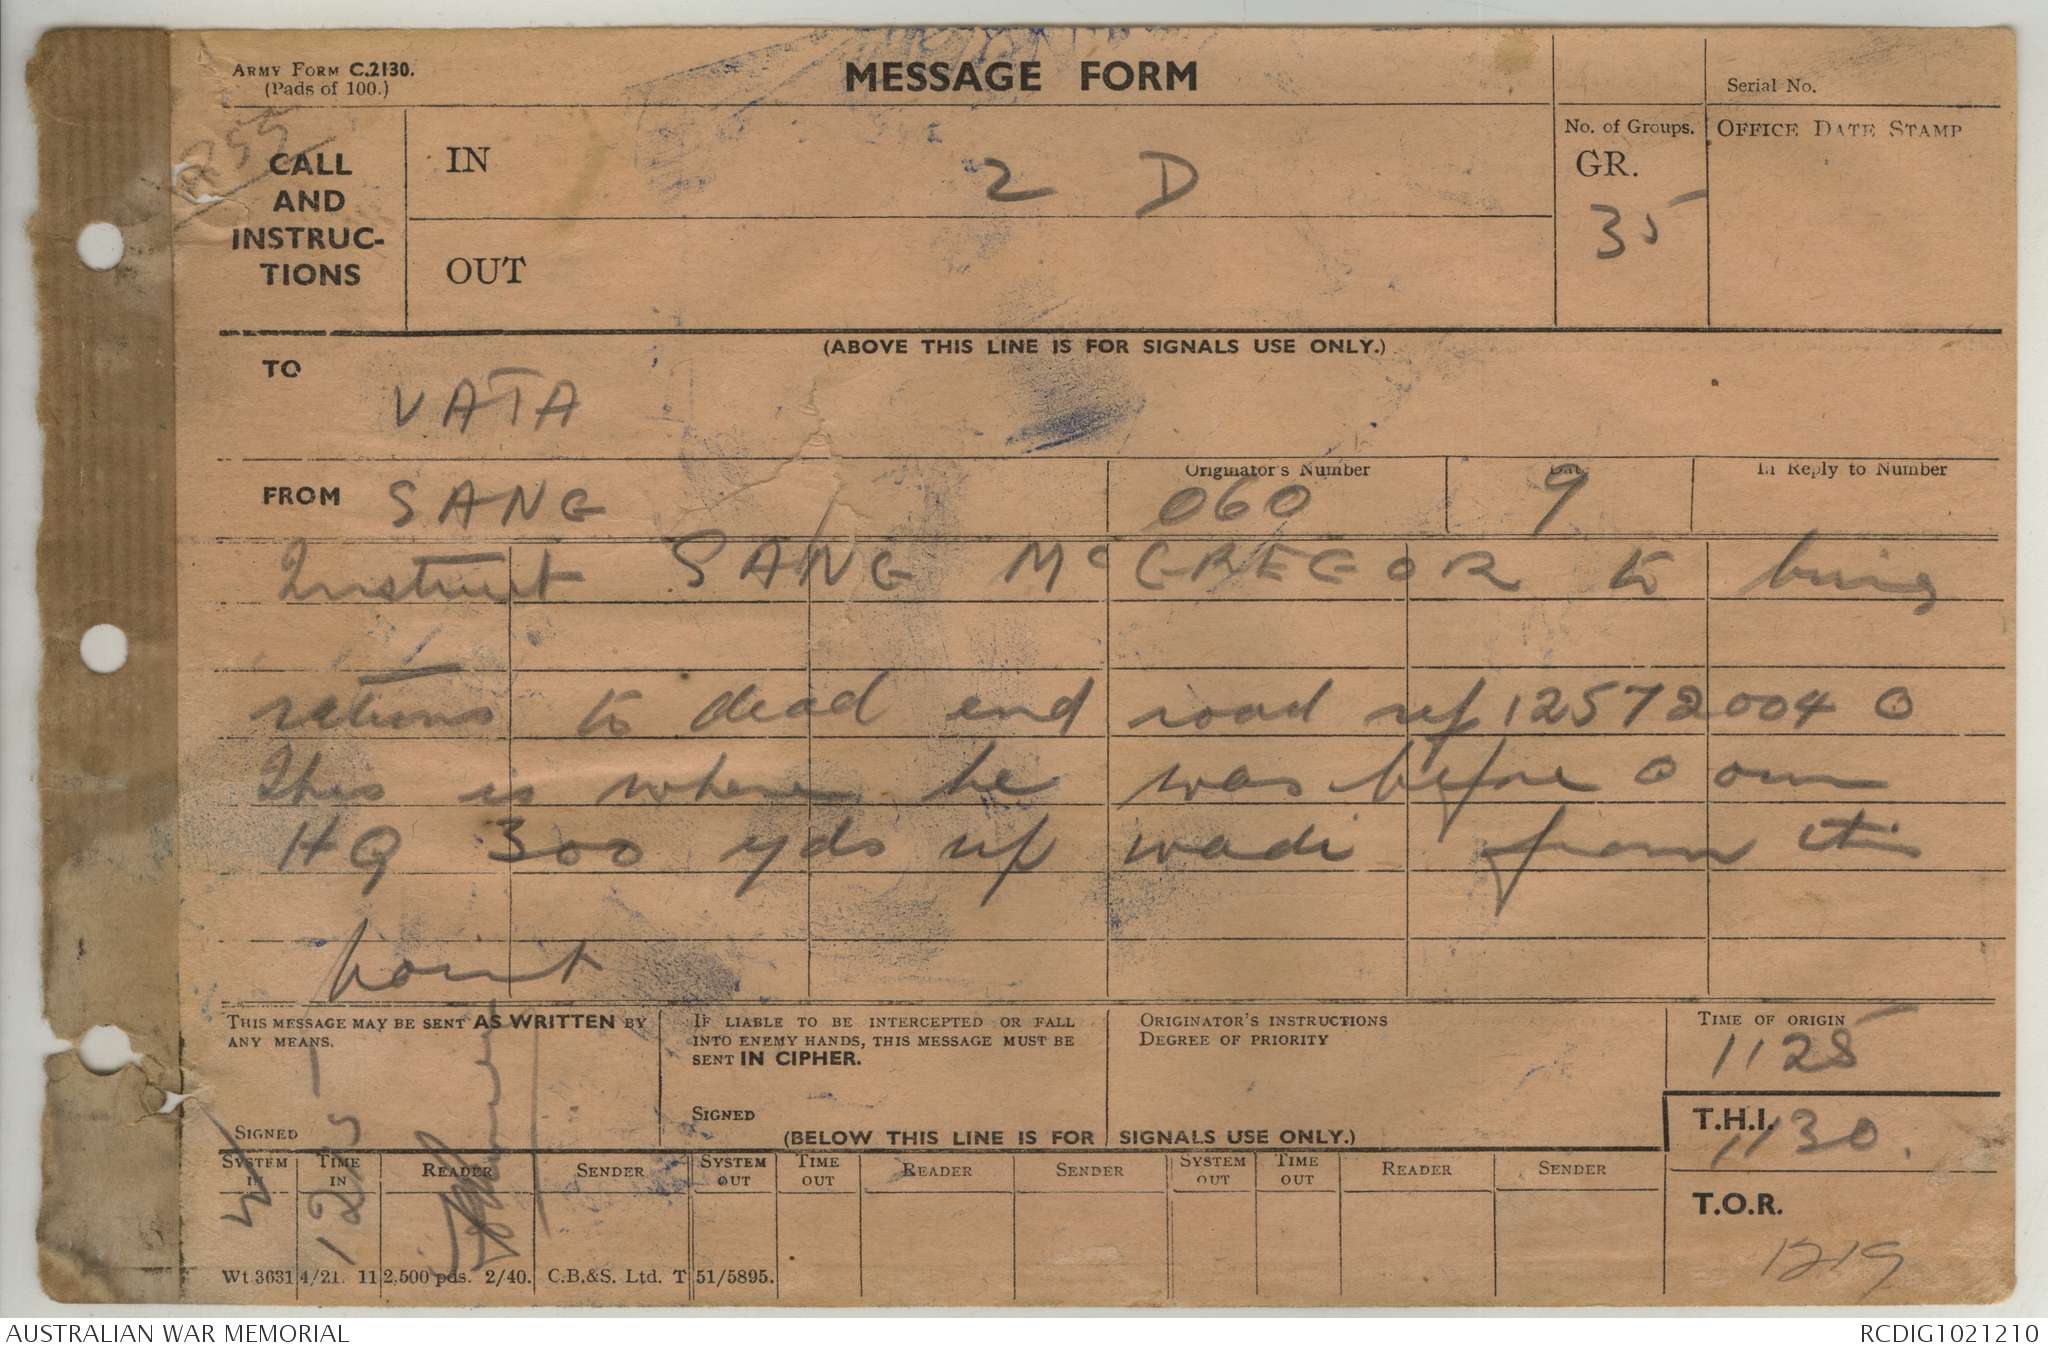 ARMY FORM C.2130.
(Pads of 100.)
MESSAGE FORM
Serial No.
CALL
AND
INSTRUC-
TIONS
IN
2 D
OUT
No. of Groups.
GR.
35
OFFICE DATE STAMP
(ABOVE THIS LINE IS FOR SIGNALS USE ONLY.)
TO
VATA
FROM SANG
Originator's Number
060
Date
9
In Reply to Number
Instruct SANG McGREGOR to bring
rations to dead end road ref 12572004 O
This is where he was before O our
HQ 300 yds up wadi from this
point
THIS MESSAGE MAY BE SENT AS WRITTEN BY
ANY MEANS.
SIGNED
IF LIABLE TO BE INTERCEPTED OR FALL
INTO ENEMY HANDS, THIS MESSAGE MUST BE
SENT IN CIPHER.
SIGNED
ORIGINATOR'S INSTRUCTIONS
DEGREE OF PRIORITY
TIME OF ORIGIN
1125
(BELOW THIS LINE IS FOR SIGNALS USE ONLY.)
T.H.I.
1130.
SYSTEM IN
TIME IN
READER
SENDER
SYSTEM OUT
TIME OUT
READER
SENDER
SYSTEM OUT
TIME OUT
READER
SENDER
T.O.R.
1219
Wt.3631 4/21. 11 2,500 pds. 2/40. C.B.&S. Ltd. T 51/5895.
AUSTRALIAN WAR MEMORIAL
RCDIG1021210